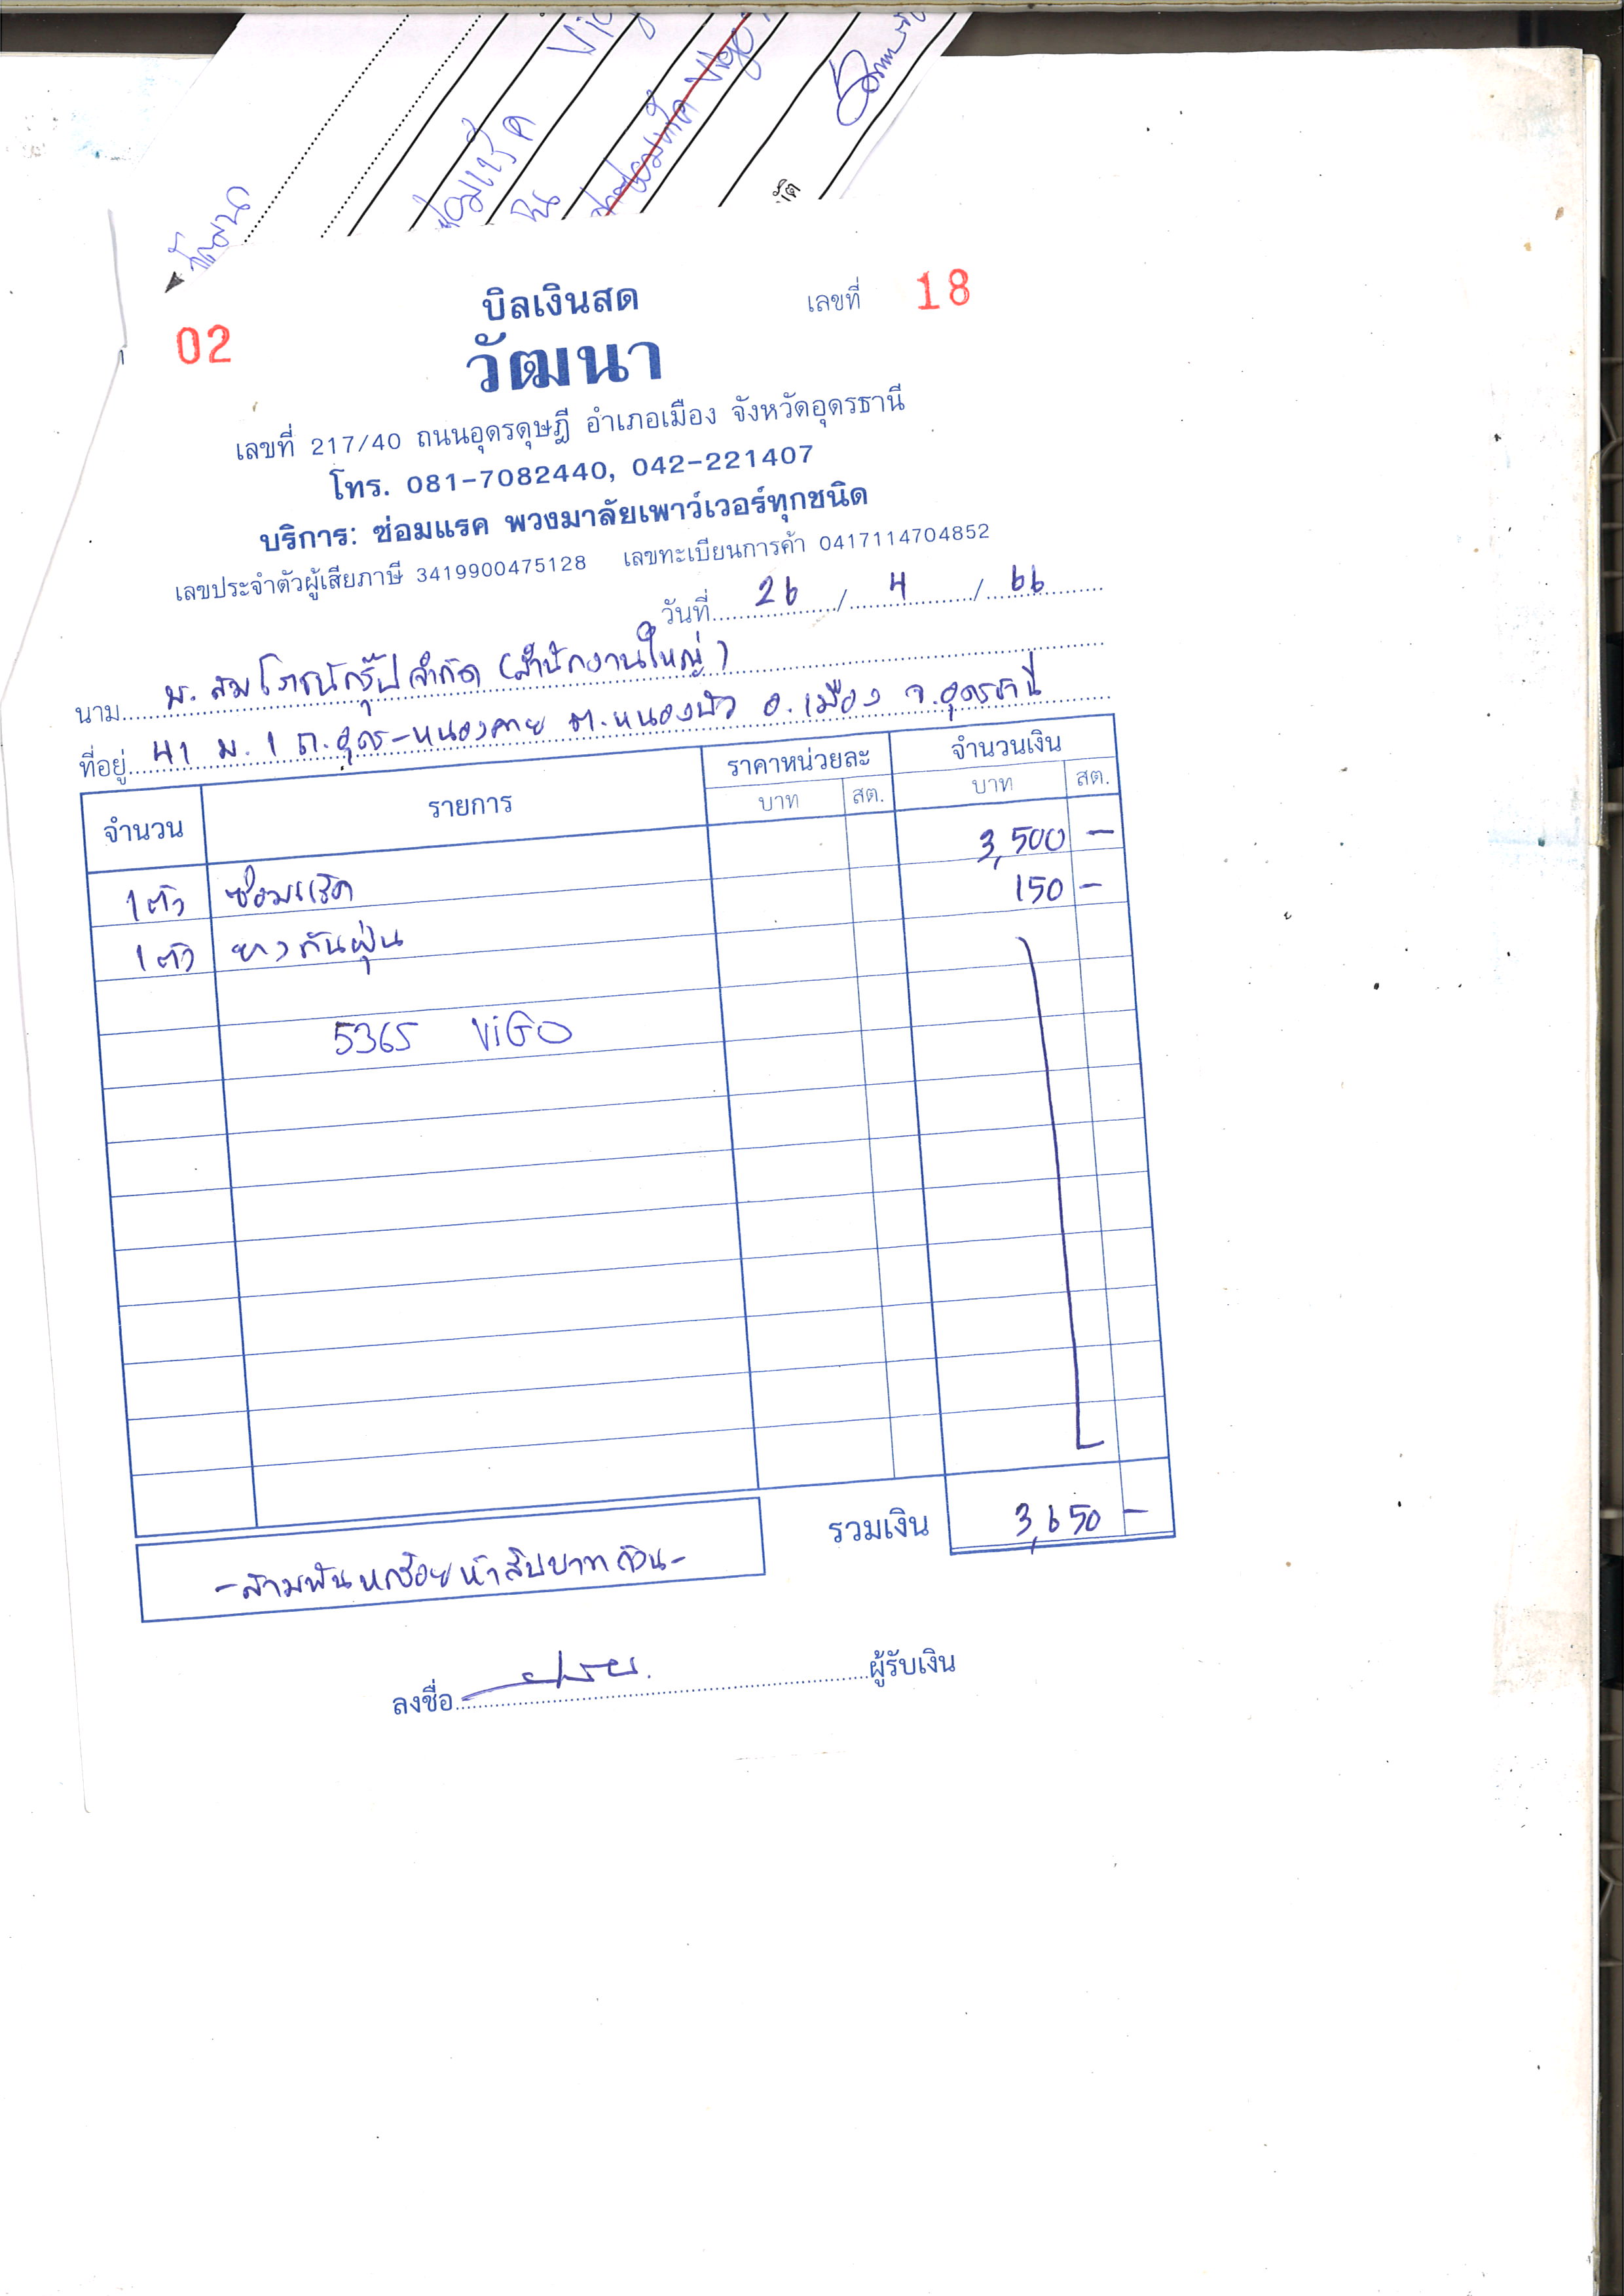 ซ่อมแร็ค Vig
บิลเงินสด
เลขที่ 18
02
วัฒนา
เลขที่ 217/40 ถนนอุดรดุษฎี อำเภอเมือง จังหวัดอุดรธานี
โทร. 081-7082440, 042-221407
บริการ: ซ่อมแรค พวงมาลัยเพาว์เวอร์ทุกชนิด
เลขประจำตัวผู้เสียภาษี 3419900475128 เลขทะเบียนการค้า 0417114704852
วันที่ 26 / 4 / 66
นาม บ. สมโภชน์กรุ๊ป จำกัด (สำนักงานใหญ่)
ที่อยู่ 41 ม. 1 ถ.อุดร-หนองคาย ต.หนองบัว อ.เมือง จ.อุดรธานี
จำนวน รายการ ราคาหน่วยละ จำนวนเงิน
บาท สต. บาท สต.
1 ตัว ซ่อมแร็ค 3,500 -
1 ตัว ยางกันฝุ่น 150 -
5365 ViGO
รวมเงิน 3,650 -
-สามพันหกร้อยห้าสิบบาทถ้วน-
ลงชื่อ ผู้รับเงิน